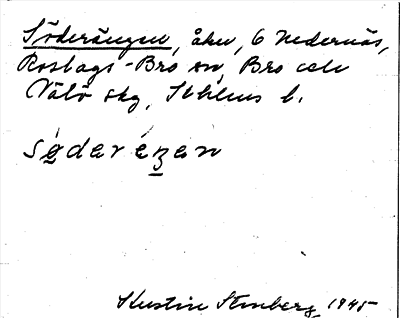 Söderängen, åker, 6 Nedernäs,
Roslags-Bro sn, Bro och
Vätö skg, Sthlms l.
södar éŋen
Kerstin Stenberg 1945